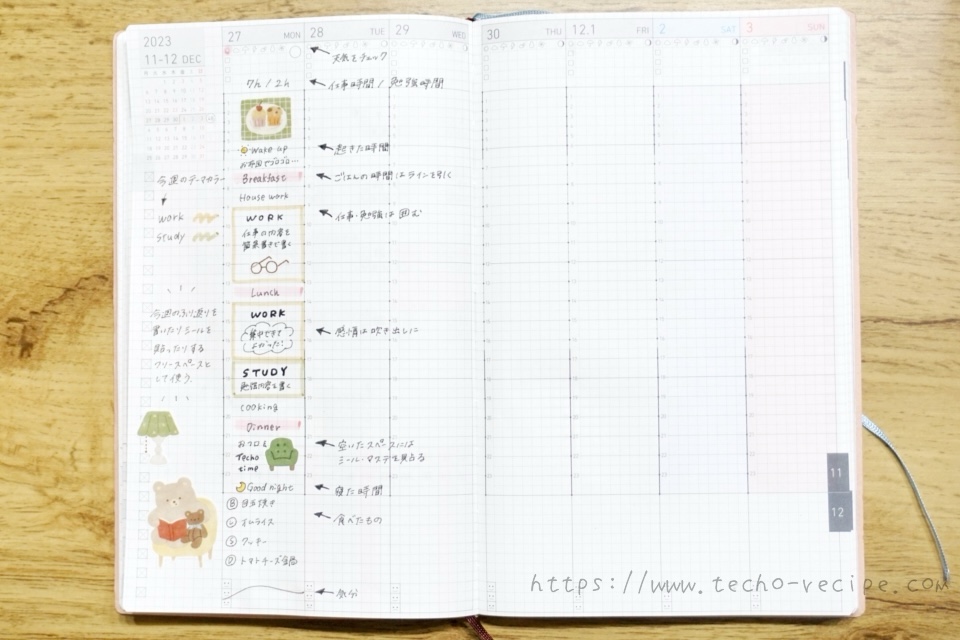 2023
11-12 DEC
27 MON
28 TUE
29 WED
30 THU
12.1 FRI
2 SAT
3 SUN
天気をチェック
7h / 2h
仕事時間 / 勉強時間
Wake up
お布団でゴロゴロ…
起きた時間
今週のテーマカラー
Breakfast
ごはんの時間はラインを引く
House work
work
study
WORK
仕事の内容を
箇条書きで書く
仕事・勉強は囲む
Lunch
今週のふり返りを
書いたりシールを
貼ったりする
フリースペースと
して使う
WORK
集中できて
よかった!
感情は吹き出しに
STUDY
勉強内容を書く
cooking
Dinner
おフロ&
Techo
time
空いたスペースには
シール・マステを貼る
Good night
寝た時間
B 目玉焼き
L オムライス
S クッキー
D トマトチーズ
食べたもの
気分
11
12
https://www.techo-recipe.com